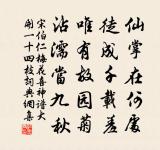 仙掌在何處
徒成千載羞
唯有故園菊
沾濡當九秋
宋伯仁梅花喜神譜大
開一十四枝詞典網集